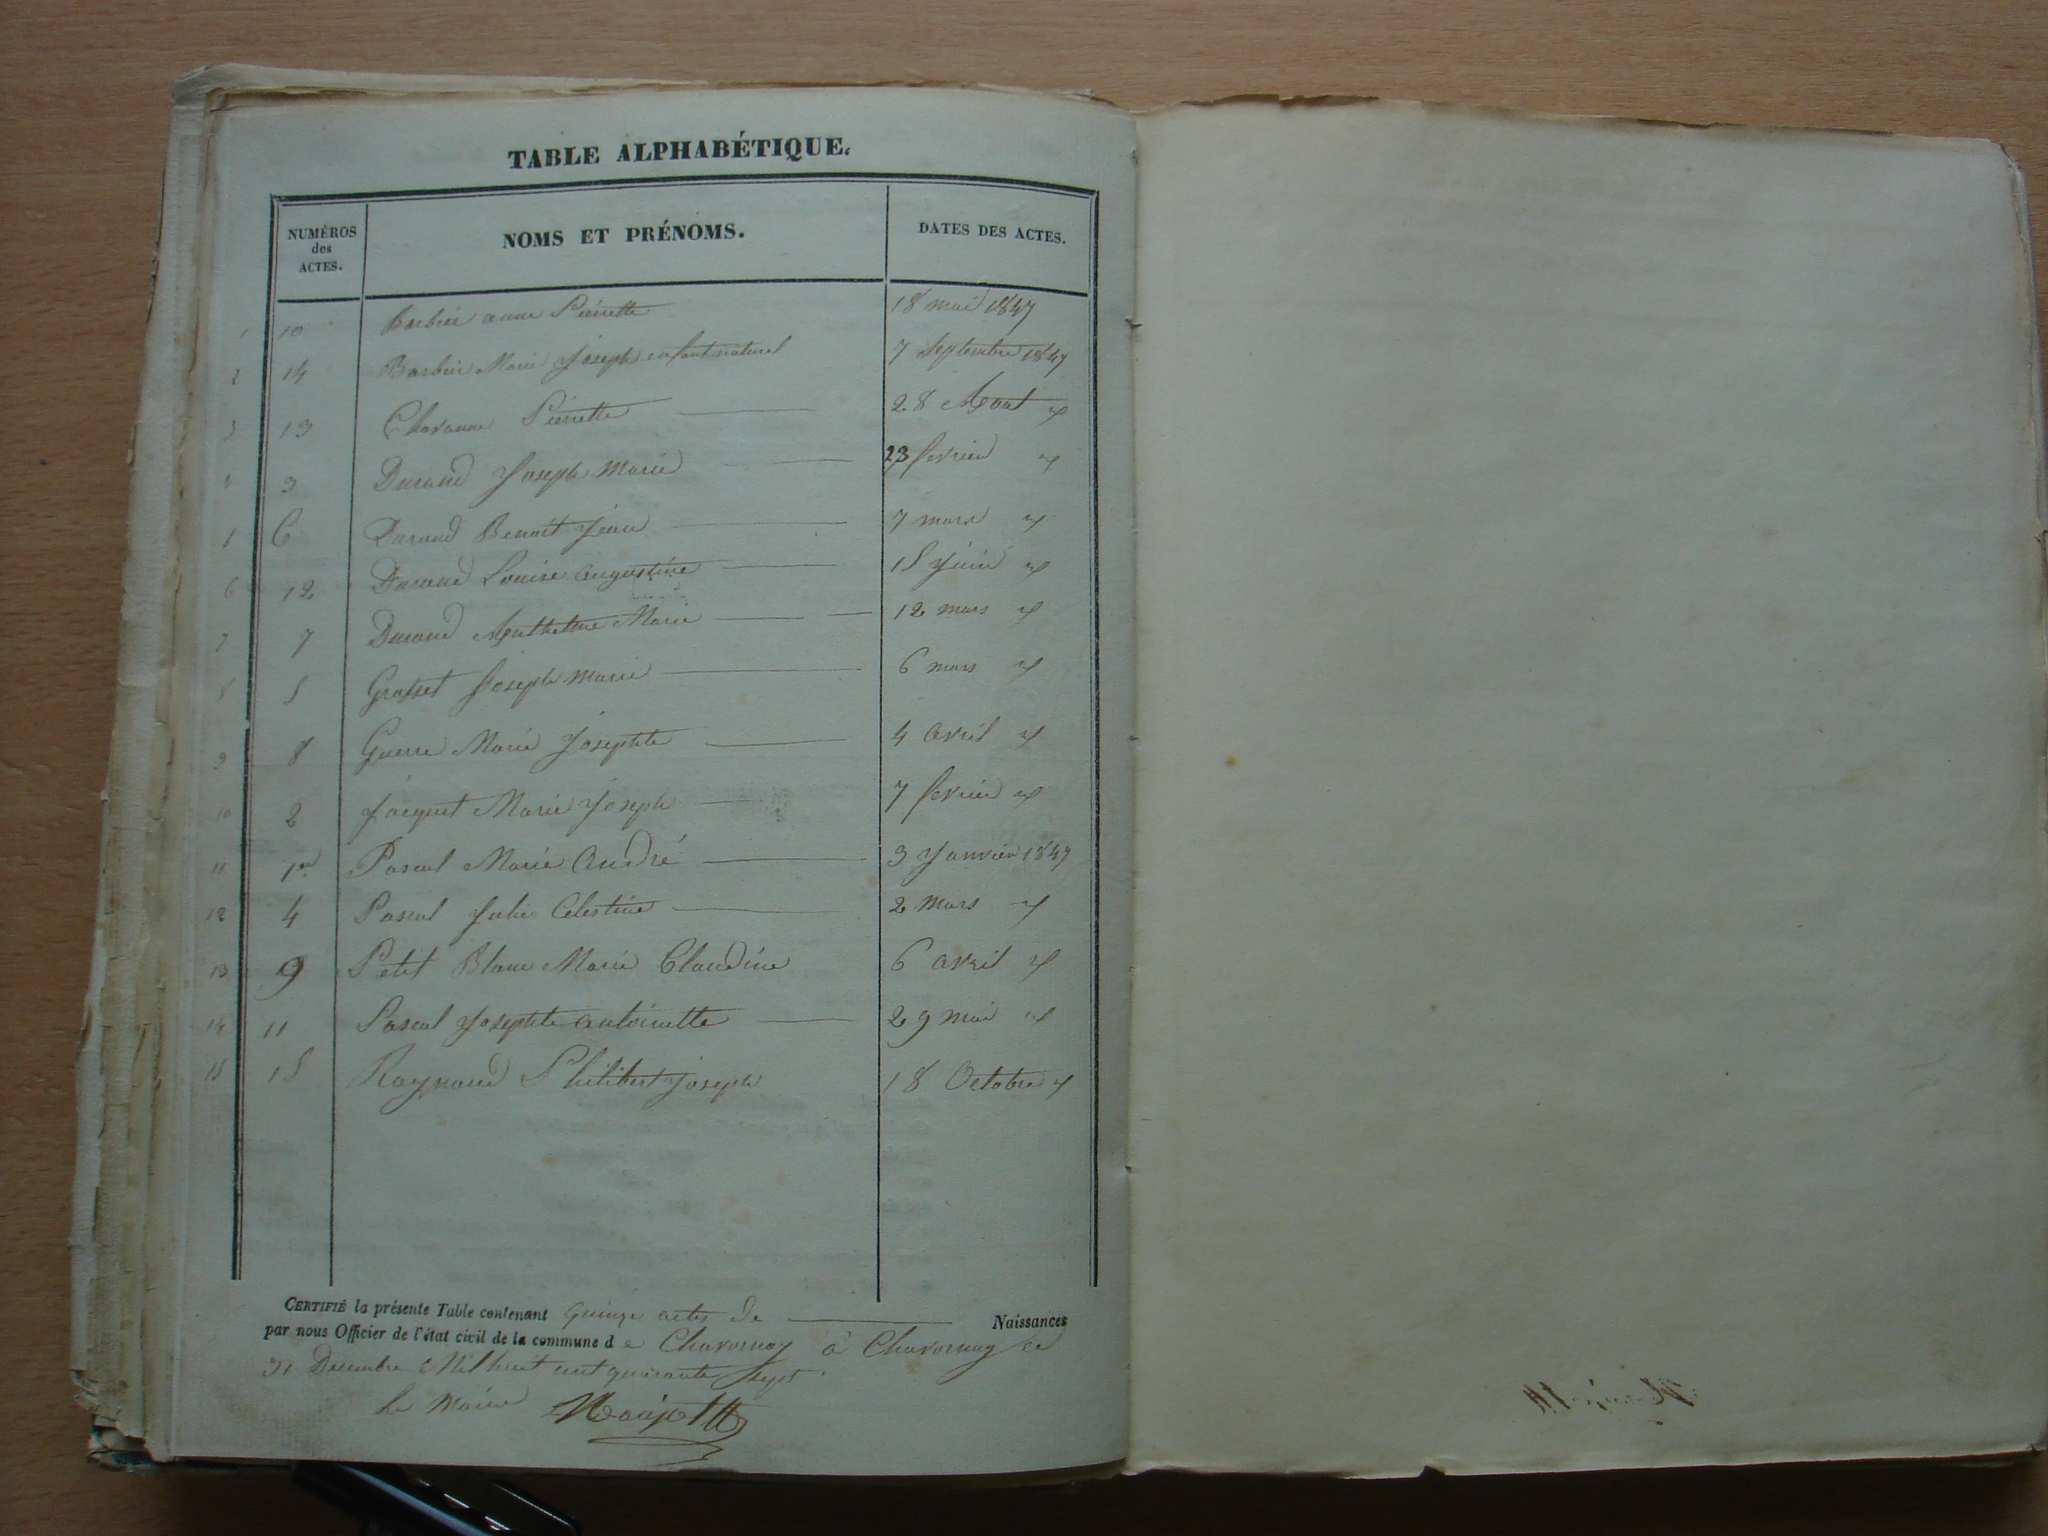 TABLE ALPHABÉTIQUE.
NUMÉROS des ACTES. NOMS ET PRÉNOMS. DATES DES ACTES.
1 10 Barbier anne Pierrette 18 mai 1847
2 14 Barbier Marie Joseph enfant naturel 7 Septembre 1847
3 13 Chavanne Pierrette 28 Aout
4 3 Durand Joseph Marie 23 fevrier
5 6 Durand Benoit Jean 7 mars
6 12 Durand Louise augustine 15 Juin
7 7 Durand Anthelme Marie 12 mars
8 5 Grosset Joseph Marie 6 mars
9 8 Guerre Marie Josephte 4 avril
10 2 Jacquet Marie Joseph 7 fevrier
11 1er Pascal Marie André 3 Janvier 1847
12 4 Pascal Julie Celestine 2 mars
13 9 Petit Blanc Marie Claudine 6 avril
14 11 Pascal Josephte antoinette 29 mai
15 15 Raynaud Philibert Joseph 18 Octobre
CERTIFIÉ la présente Table contenant quinze actes de Naissances
par nous Officier de l'état civil de la commune de Chavornay à Chavornay ce
31 Decembre Mil huit cent quarante sept
Le Maire